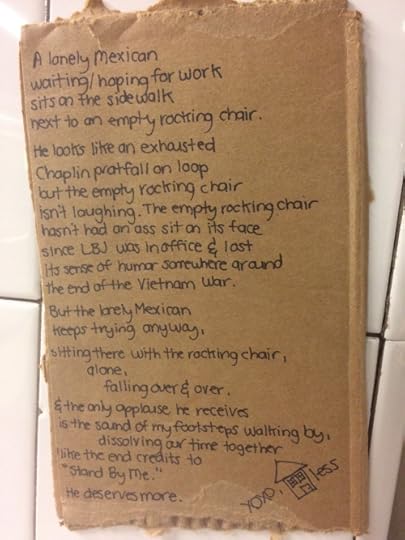 A lonely Mexican
waiting/hoping for work
sits on the sidewalk
next to an empty rocking chair.
He looks like an exhausted
Chaplin pratfall on loop
but the empty rocking chair
isn't laughing. The empty rocking chair
hasn't had an ass sit on its face
since LBJ was in office & lost
its sense of humor somewhere around
the end of the Vietnam War.
But the lonely Mexican
keeps trying anyway,
sitting there with the rocking chair,
alone,
falling over & over.
& the only applause he receives
is the sound of my footsteps walking by,
dissolving our time together
like the end credits to
"Stand By Me."
He deserves more.
XOXO, less